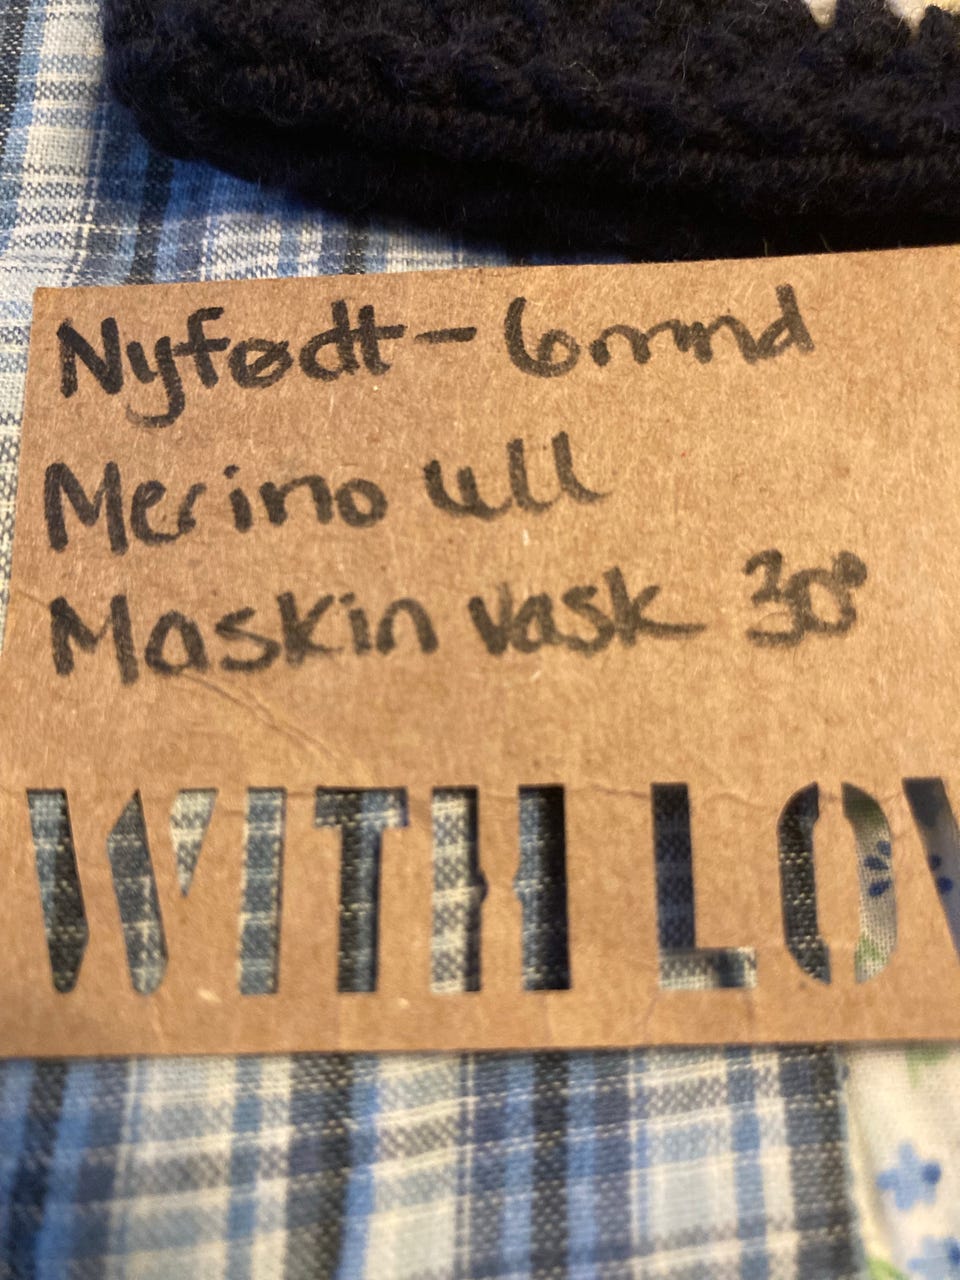 Nyfødt - 6mnd
Merino ull
Maskin vask 30°
WITH LOV